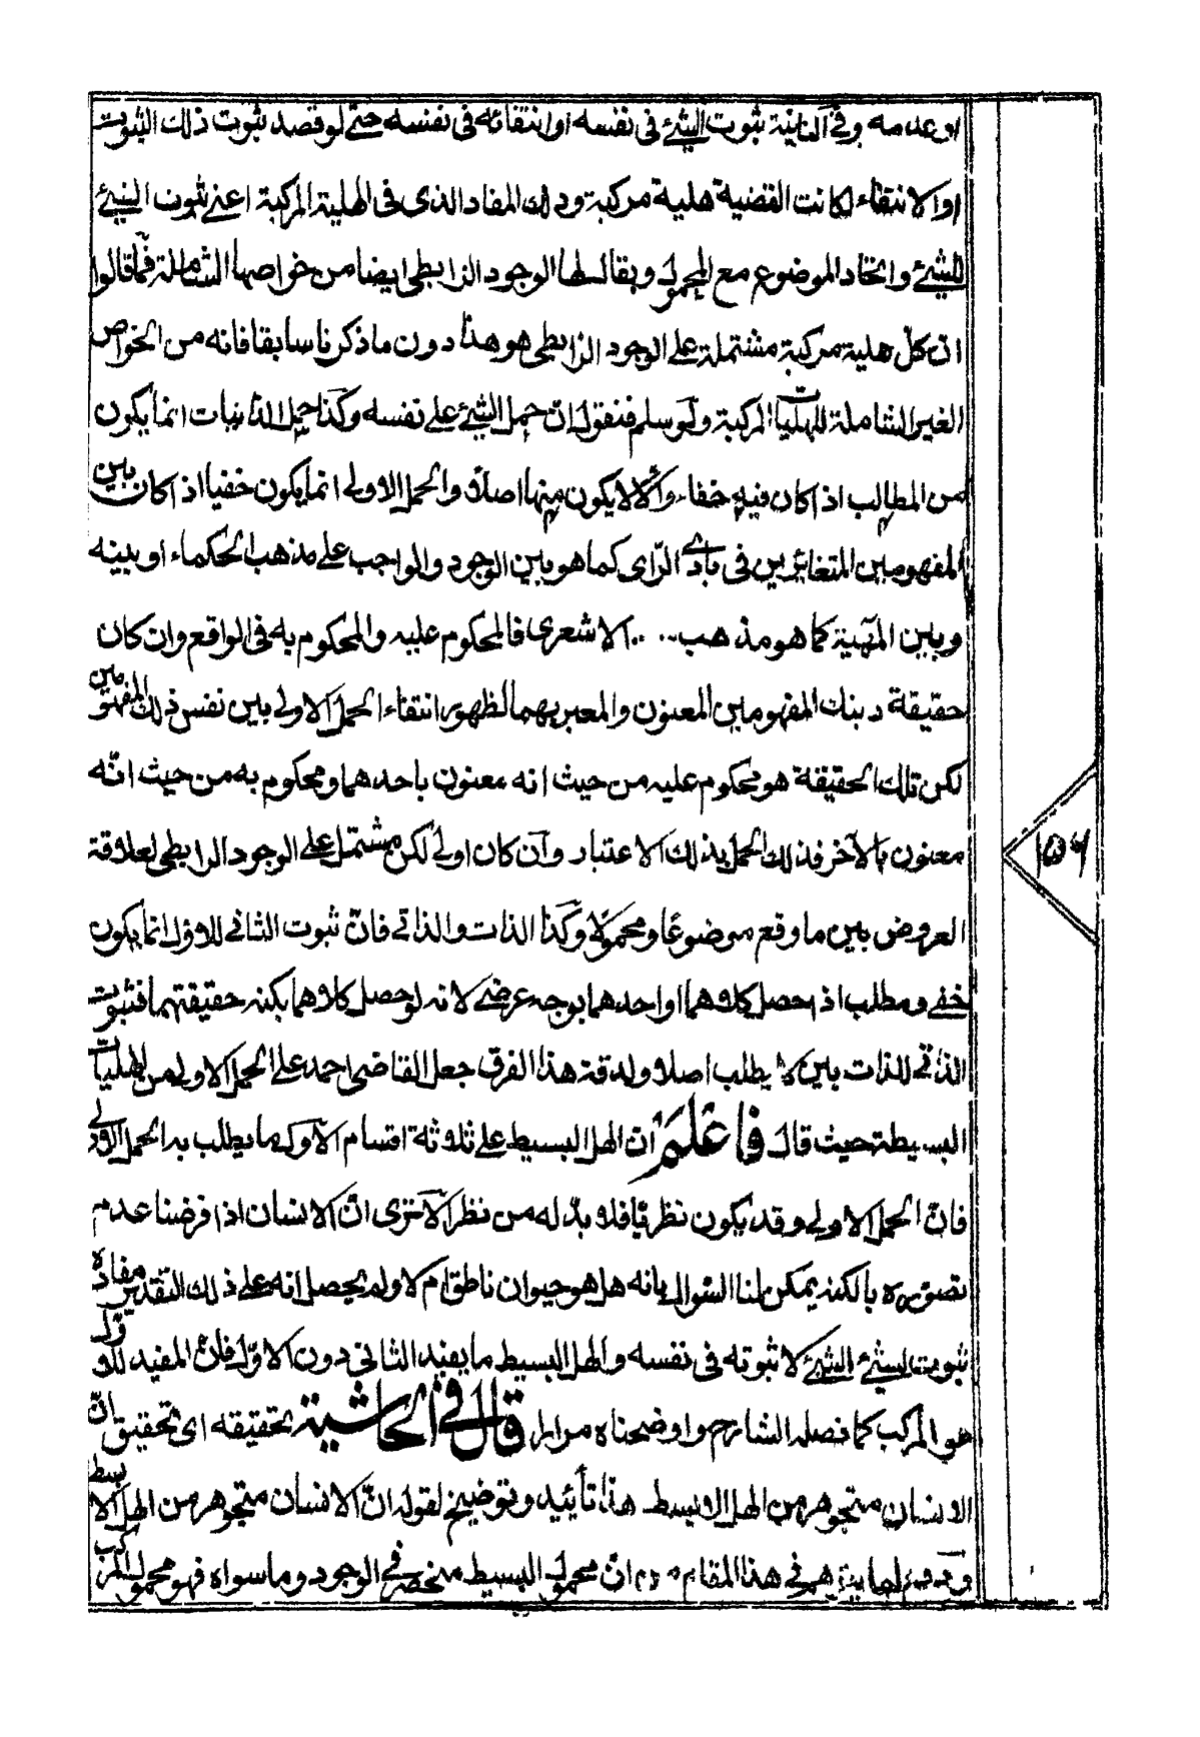 او عدمه وفي الثانية ثبوت الشيئ في نفسه او انتفائه في نفسه حتى لو قصد ثبوت ذلك الثبوت
او الانتفاء لكانت القضية هلية مركبة وذلك المفاد الذى في الهلية المركبة اعنے ثبوت الشيئ
للشيئ واتحاد الموضوع مع المحمول ويقال لها الوجود الرابطى ايضا من خواصها الشاملة فما قالوا
ان كل هلية مركبة مشتملة على الوجود الرابطى هو هذا دون ما ذكرنا سابقا فانه من الخواص
الغير الشاملة للهليات المركبة ولو سلم فنقول ان حمل الشيئ على نفسه وكذا حمل الذاتيات انما يكون
من المطالب اذا كان فيه خفاء والا لا يكون منها اصلا والحمل الاولى انما يكون خفيا اذا كان بين
المفهومين المتغائرين في بادى الرّاى كما هو بين الوجود والواجب على مذهب الحكماء او بينه
وبين المهية كما هو مذهب الاشعرى فالمحكوم عليه والمحكوم به في الواقع وان كان
حقيقة ذينك المفهومين المعنون والمعبر بهما لظهور انتفاء الحمل الاولى بين نفس ذلك المفهومين
لكن تلك الحقيقة هو محكوم عليه من حيث انه معنون باحدهما ومحكوم به من حيث انّه
معنون بالآخر فذلك الحمل بذلك الاعتبار وان كان اولى لكن مشتمل على الوجود الرابطى لعلاقة
العروض بين ما وقع موضوعًا ومحمولًا وكذا الذات والذاتى فانّ ثبوت الثانى للاول انما يكون
خفى ومطلب اذا حصل كلاهما او احدهما بوجه عرضى لانه لو حصل كلاهما بكنه حقيقتهما فثبوت
الذاتى للذات بين لا يطلب اصلا ولدقة هذا الفرق جعل القاضى احمد على الحمل الاولى من الهليات
البسيطة حيث قال فاعلم ان الهل البسيط على ثلاثة اقسام الاول ما يطلب به الحمل الاولى
فانّ الحمل الاولى وقد يكون نظريًا فلا بدّ له من نظر الا ترى انّ الانسان اذا فرضنا عدم
تصوره بالكنه يمكن لنا السّوال بانه هل هو حيوان ناطق ام لا ولم يحصل انه على ذلك التقدير مفاده
ثبوت الشيئ الشيئ لا ثبوته في نفسه والهل البسيط ما يفيد الثانى دون الاوّل فانّ المفيد للاول
هو المركب كما فصله الشارح واوضحناه مرارا قال في الحاشية تحقيقه اى تحقيق انّ
الانسان متجوهر من الهل الابسط هذا تأئيد وتوضيح لقوله انّ الانسان متجوهر من الهل الابسط
في هذا المقام ان محمول البسيط منحصر في الوجود وما سواه فهو محمول المركب
١٥٦